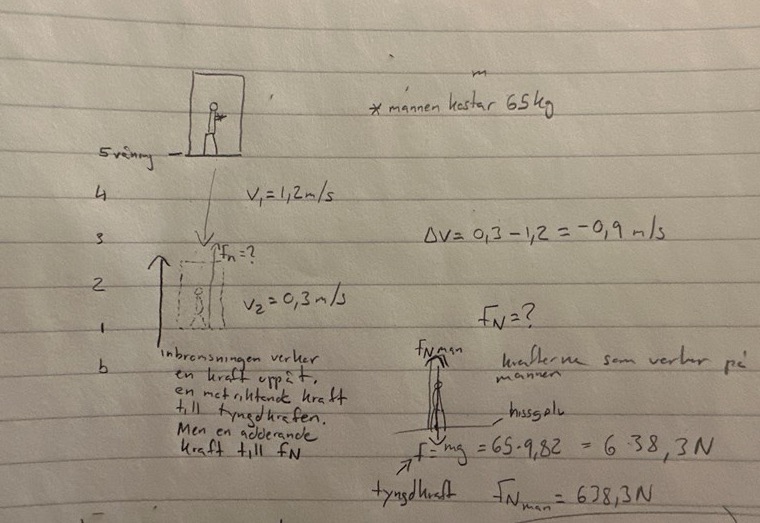 m
* männen kostar 65kg
5 våning
4
V₁ = 1,2 m/s
3
ΔV = 0,3 - 1,2 = -0,9 m/s
fn = ?
2
V₂ = 0,3 m/s
1
FN = ?
b
inbromsningen verkar
en kraft uppåt.
en motriktende kraft
till tyngdkrafen.
Men en adderande
kraft till fN
fN man
krafterna som verkar på
mannen
hissgolv
f = mg = 65·9,82 = 638,3N
tyngdkraft
FN man = 638,3N